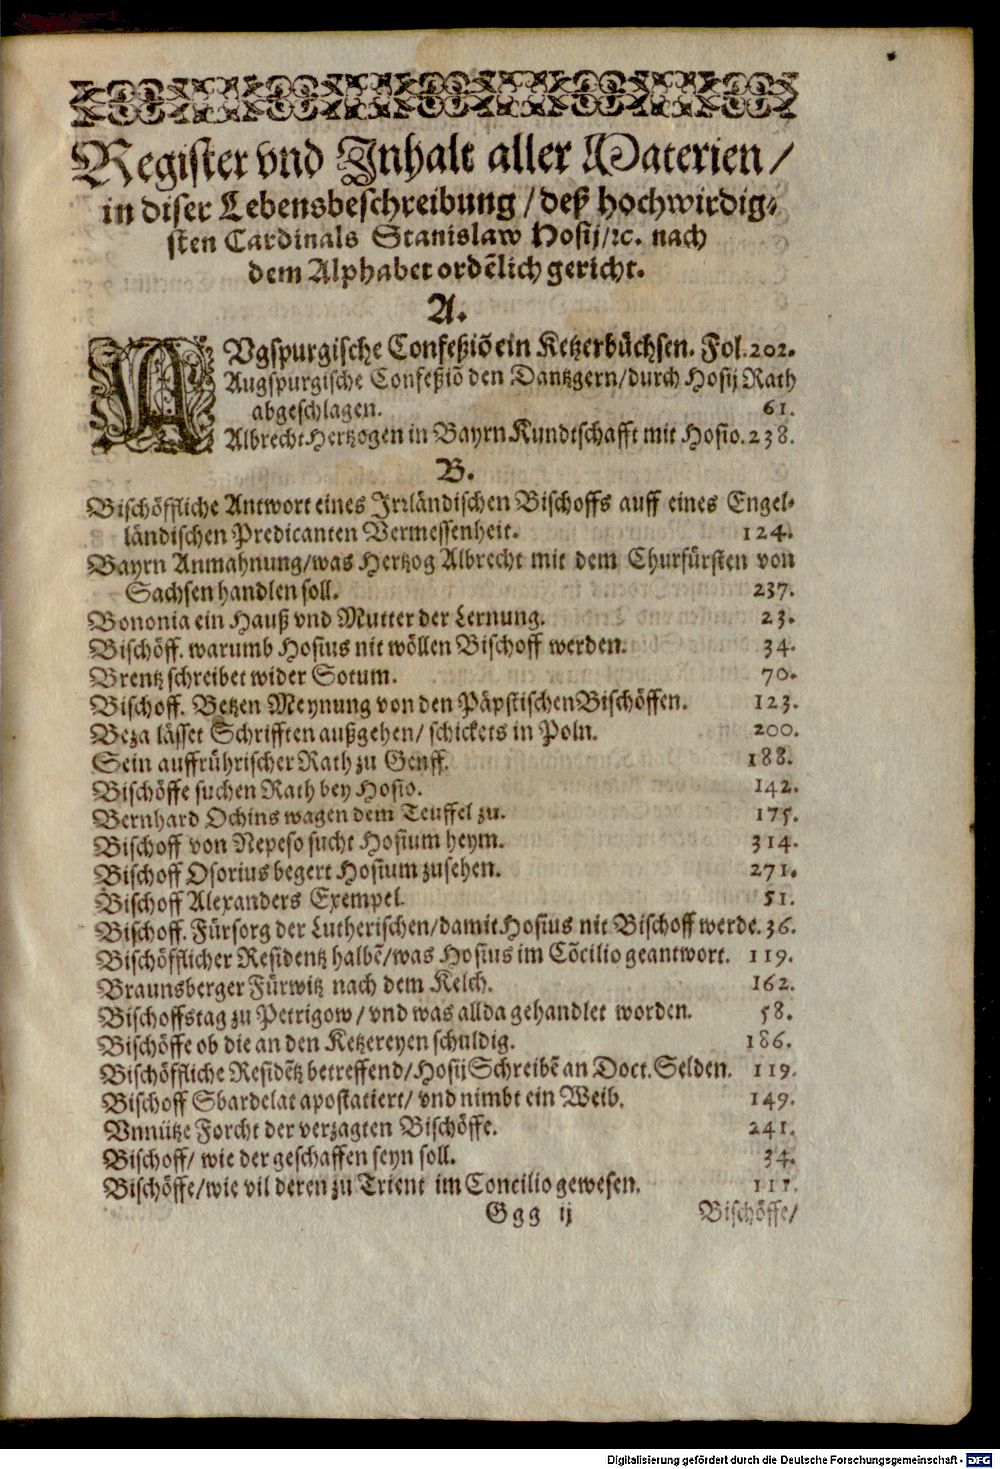 Register vnd Inhalt aller Materien /
in diser Lebensbeschreibung / deß hochwirdig-
sten Cardinals Stanislaw Hosij / ꝛc. nach
dem Alphabet ordẽlich gericht.
A.
AVgspurgische Confeßiõ ein Ketzerbüchsen. Fol. 202.
Augspurgische Confeßiõ den Dantzgern / durch Hosij Rath
abgeschlagen. 61.
Albrecht Hertzogen in Bayrn Kundtschafft mit Hosio. 238.
B.
Bischöffliche Antwort eines Irrländischen Bischoffs auff eines Engel-
ländischen Predicanten Vermessenheit. 124.
Bayrn Anmahnung / was Hertzog Albrecht mit dem Churfürsten von
Sachsen handlen soll. 237.
Bononia ein Hauß vnd Mutter der Lernung. 23.
Bischöff. warumb Hosius nit wöllen Bischoff werden. 34.
Brentz schreibet wider Sotum. 70.
Bischoff. Betzen Meynung von den Päpstischen Bischöffen. 123.
Beza lässet Schrifften außgehen / schickets in Poln. 200.
Sein auffrührischer Rath zu Genff. 188.
Bischöffe suchen Rath bey Hosio. 142.
Bernhard Ochins wagen dem Teuffel zu. 175.
Bischoff von Nepeso sucht Hosium heym. 314.
Bischoff Osorius begert Hosium zusehen. 271.
Bischoff Alexanders Exempel. 51.
Bischoff. Fürsorg der Lutherischen / damit Hosius nit Bischoff werde. 36.
Bischöfflicher Residentz halbẽ / was Hosius im Cõcilio geantwort. 119.
Braunsberger Fürwitz nach dem Kelch. 162.
Bischoffstag zu Petrigow / vnd was allda gehandlet worden. 58.
Bischöffe ob die an den Ketzereyen schuldig. 186.
Bischöffliche Residẽtz betreffend / Hosij Schreibẽ an Doct. Selden. 119.
Bischoff Sbardelat apostatiert / vnd nimbt ein Weib. 149.
Vnnütze Forcht der verzagten Bischöffe. 241.
Bischoff / wie der geschaffen seyn soll. 34.
Bischöffe / wie vil deren zu Trient im Concilio gewesen. 111.
Ggg ij Bischöffe /
Digitalisierung gefördert durch die Deutsche Forschungsgemeinschaft - DFG